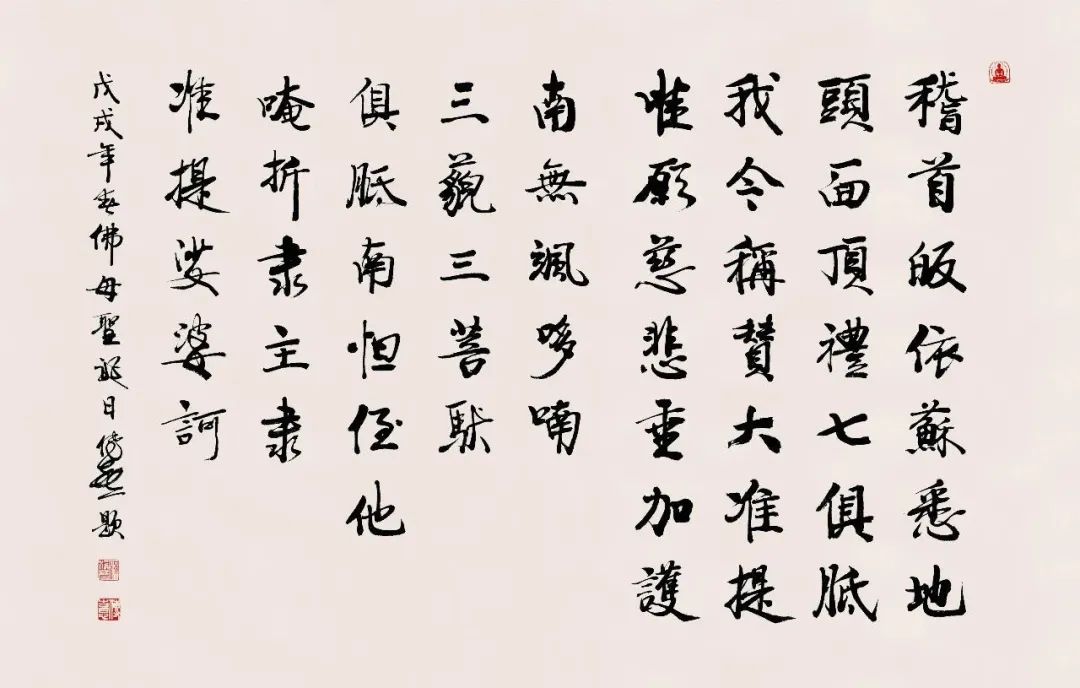 稽首皈依蘇悉地
頭面頂禮七俱胝
我今稱贊大准提
惟願慈悲垂加護
南無颯哆喃
三藐三菩馱
俱胝南怛侄他
唵折隶主隶
准提娑婆訶
戊戌年春佛母聖誕日題